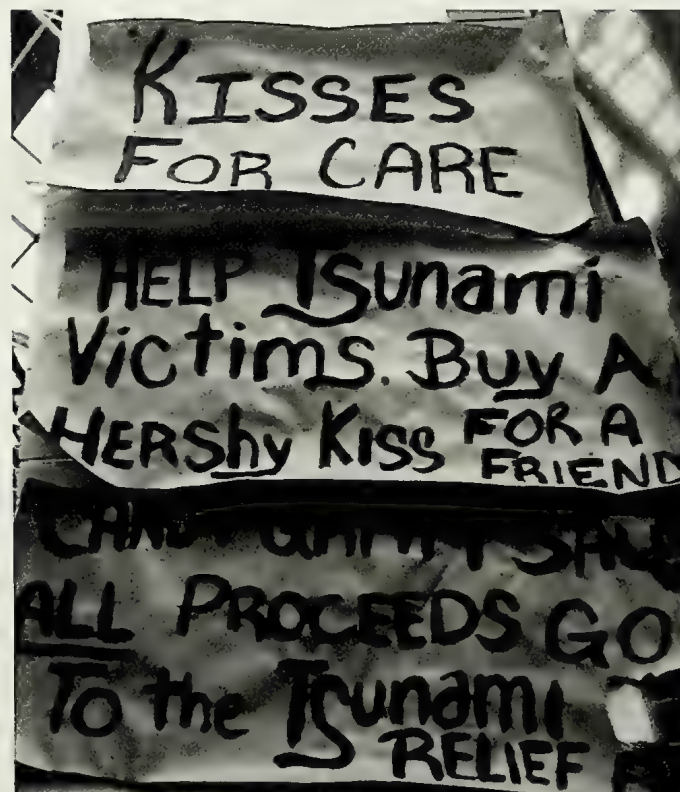 KISSES
FOR CARE
HELP TSunami
Victims. Buy A
HERShy Kiss FOR A
FRIEND
CANDY
ALL PROCEEDS GO
To the Tsunami
RELIEF